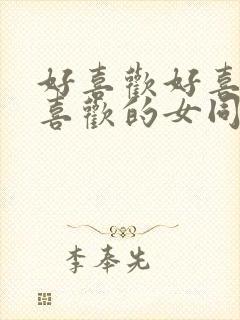 好喜歡好喜
喜歡的女同
李奉先